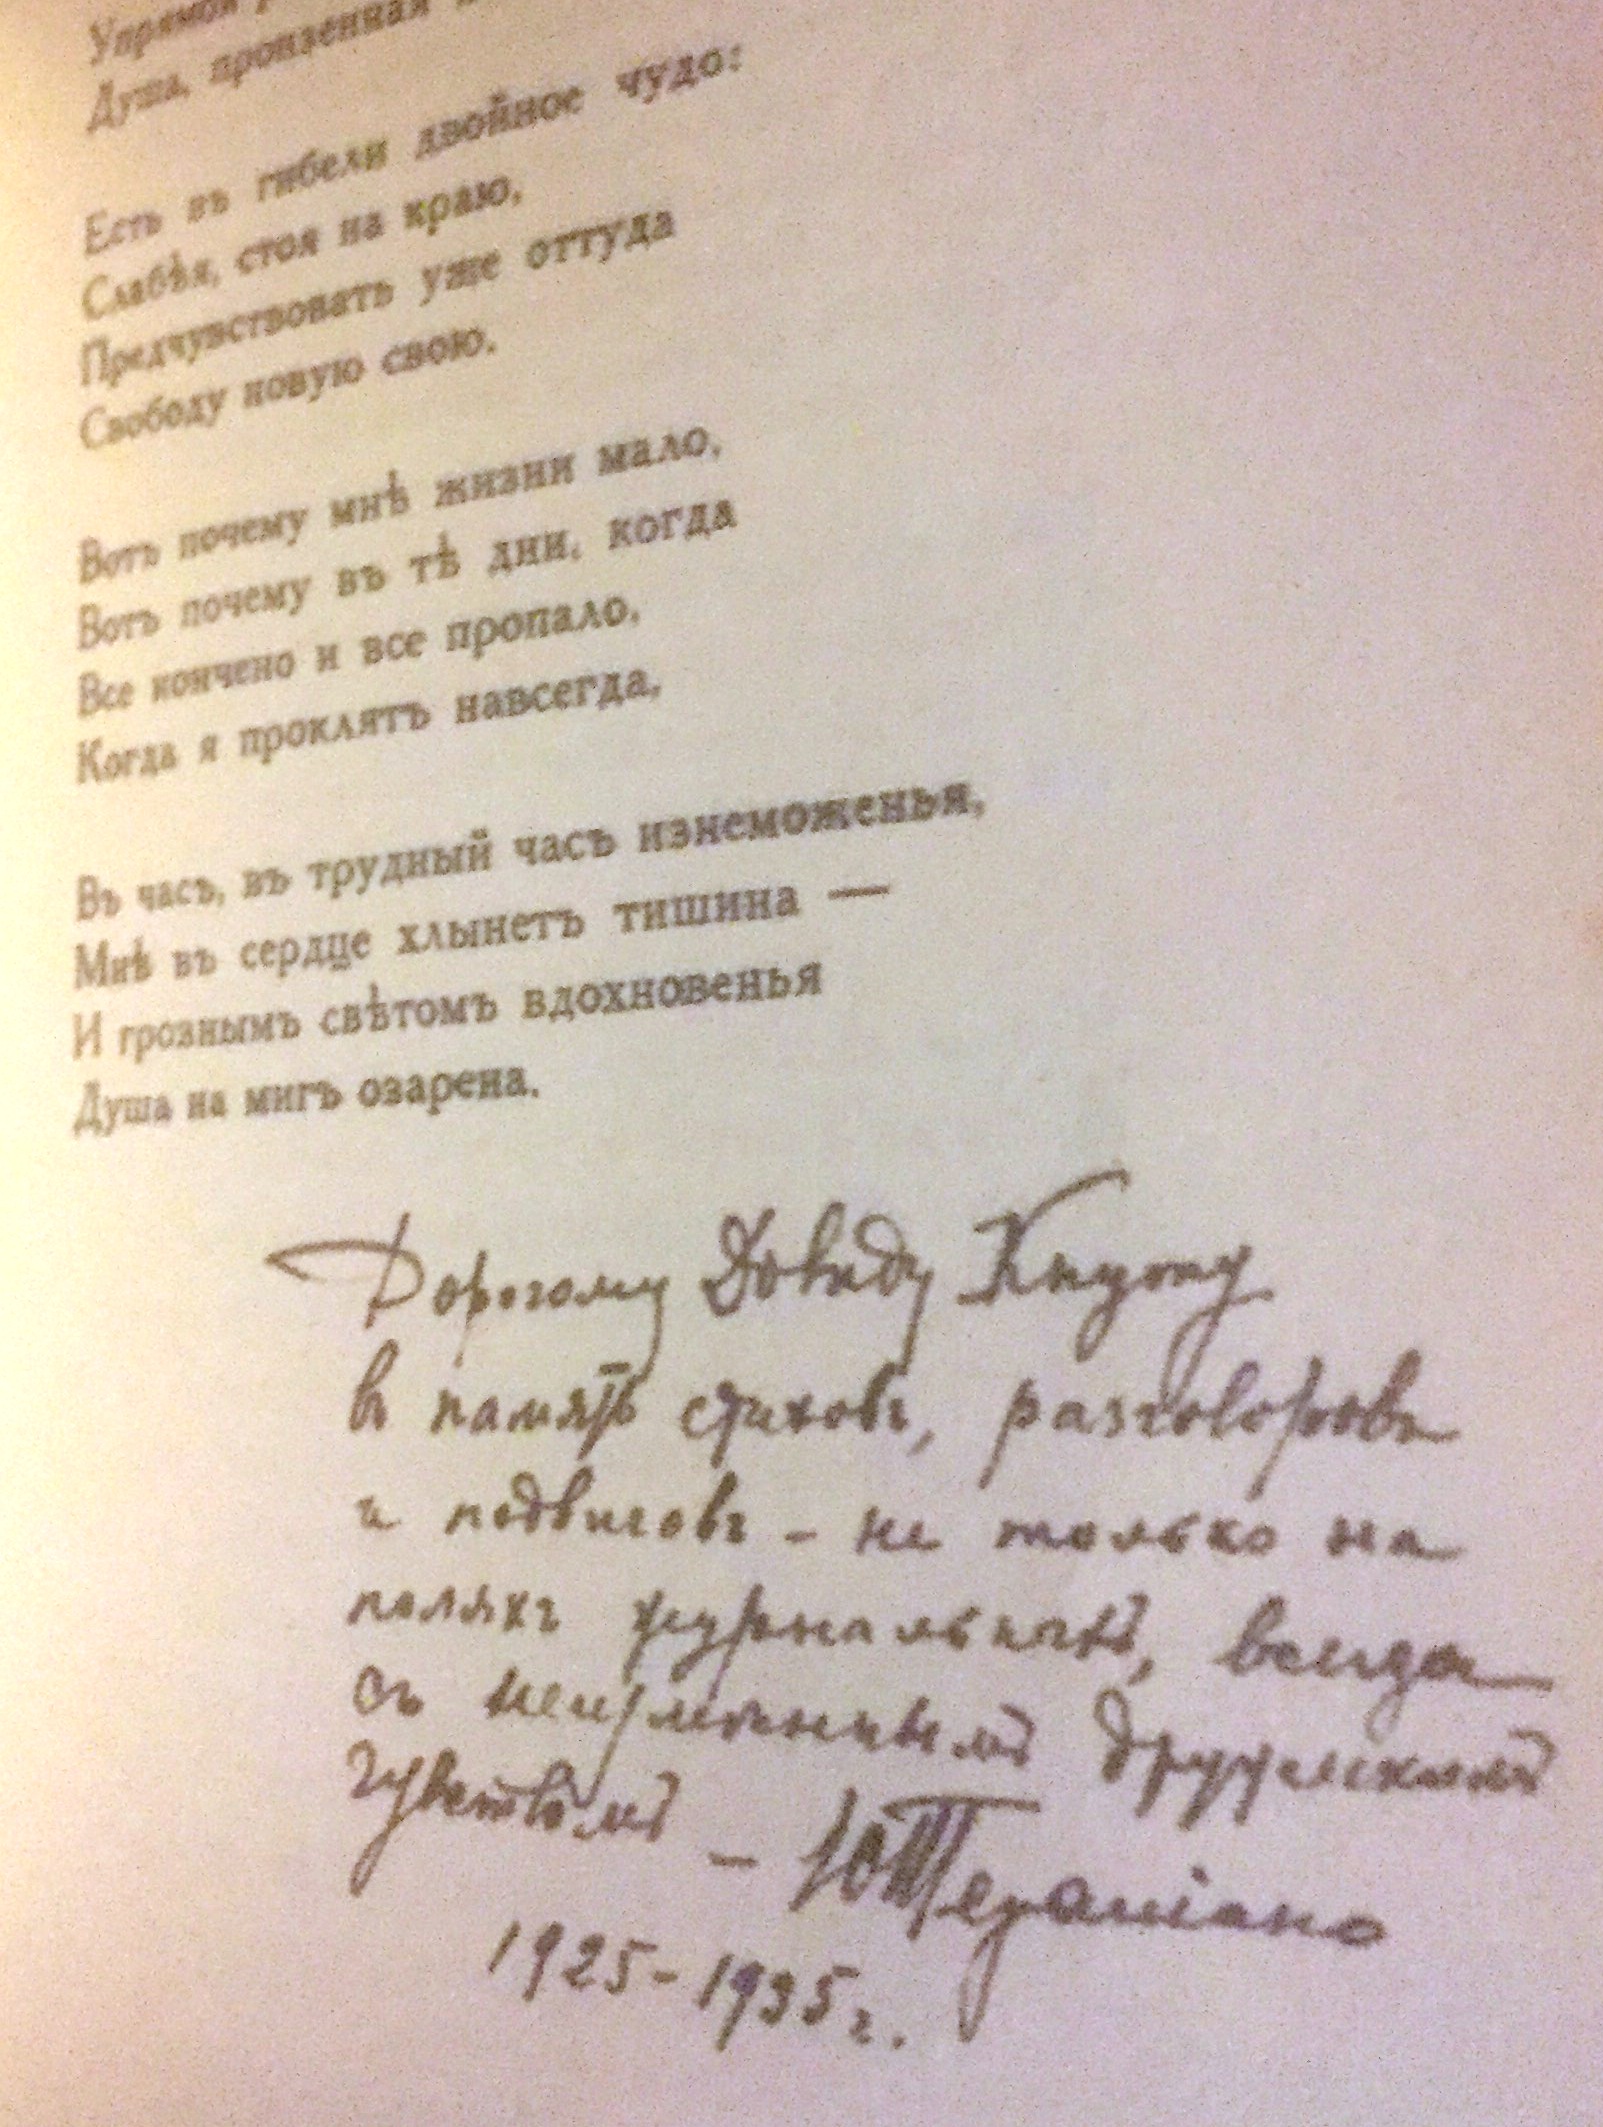 Упрямой
Душа, пронзенная
Есть въ гибели двойное чудо:
Слабѣя, стоя на краю,
Предчувствовать уже оттуда
Свободу новую свою.
Вотъ почему мнѣ жизни мало,
Вотъ почему въ тѣ дни, когда
Все кончено и все пропало,
Когда я проклятъ навсегда,
Въ часъ, въ трудный часъ изнеможенья,
Мнѣ въ сердце хлынетъ тишина —
И грознымъ свѣтомъ вдохновенья
Душа на мигъ озарена.
Дорогому Довиду Кнуту
въ память стиховъ, разговоровъ
и подвиговъ – не только на
поляхъ журнальныхъ, всегда
съ неизмѣннымъ дружескимъ
чувствомъ – Ю Терапіано
1925–1935 г.